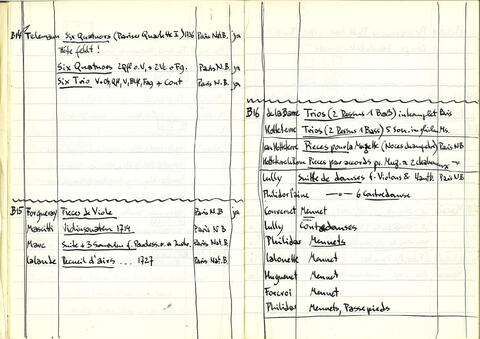 B14 Telemann Six Quatuors (Pariser Quartette I) 1736 Paris Nat.B. ja
Flöte fehlt!
Six Quatuors 2Qfl o. V, + 2Vc o Fg. Paris N.B. ja
Six Trio V. Ob, Qfl, V, Blfl, Fag + Cont Paris N.B. ja
B15 Forqueray Pieces de Viole Paris N.B ja
Mascitti Violinsonaten 1714 Paris N B
Marc Suite + 3 Sonaten f. Pardess. Paris Nat. B
Lalande Recueil d'airs ... 1727 Paris Nat.B
B16 de la Barre Trios (2 Dessus 1 Bass) incomplet Paris
Hotteterre Trios (2 Dessus 1 Bass) 5 Son. Ms.
Jean Hotteterre Pieces pour la Muzette (Noces champêtre) Paris N.B
Hotteterre Pieces par accords pr. Muz. a 2 chalumeaux
Lully Suitte de danses f. Violons & Hautb. Paris N.B
Philidor l'aine —"— 6 Contredanse
Converset Menuet
Lully Contredanses
Philidor Menuets
Lalouette Menuet
Huguenet Menuet
Forcroi Menuet
Philidor Menuets, Passepieds